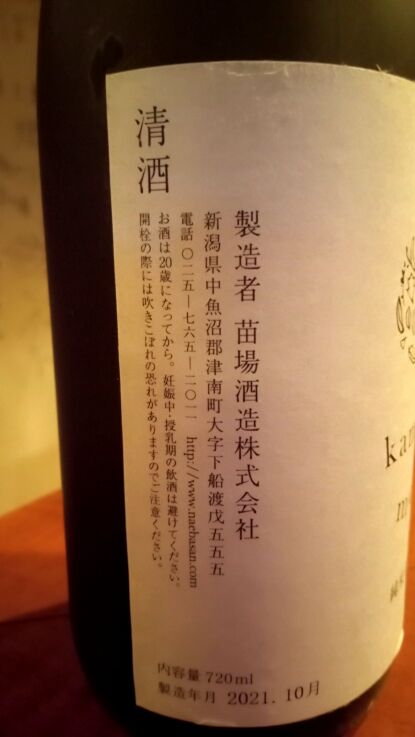 製造者 苗場酒造株式会社
新潟県中魚沼郡津南町大字下船渡戊五五五
電話 〇二五―七六五―二〇一一 http://www.naebasan.com
お酒は20歳になってから。妊娠中・授乳期の飲酒は避けてください。
開栓の際には吹きこぼれの恐れがありますのでご注意ください。
清酒
内容量 720ml
製造年月 2021. 10月